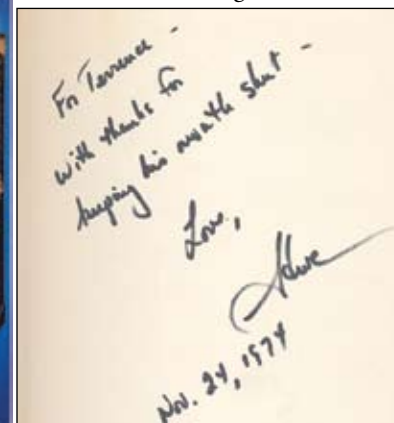 For Terrence -
with thanks for
keeping his mouth shut -
Love,
Steve
Nov. 24, 1974